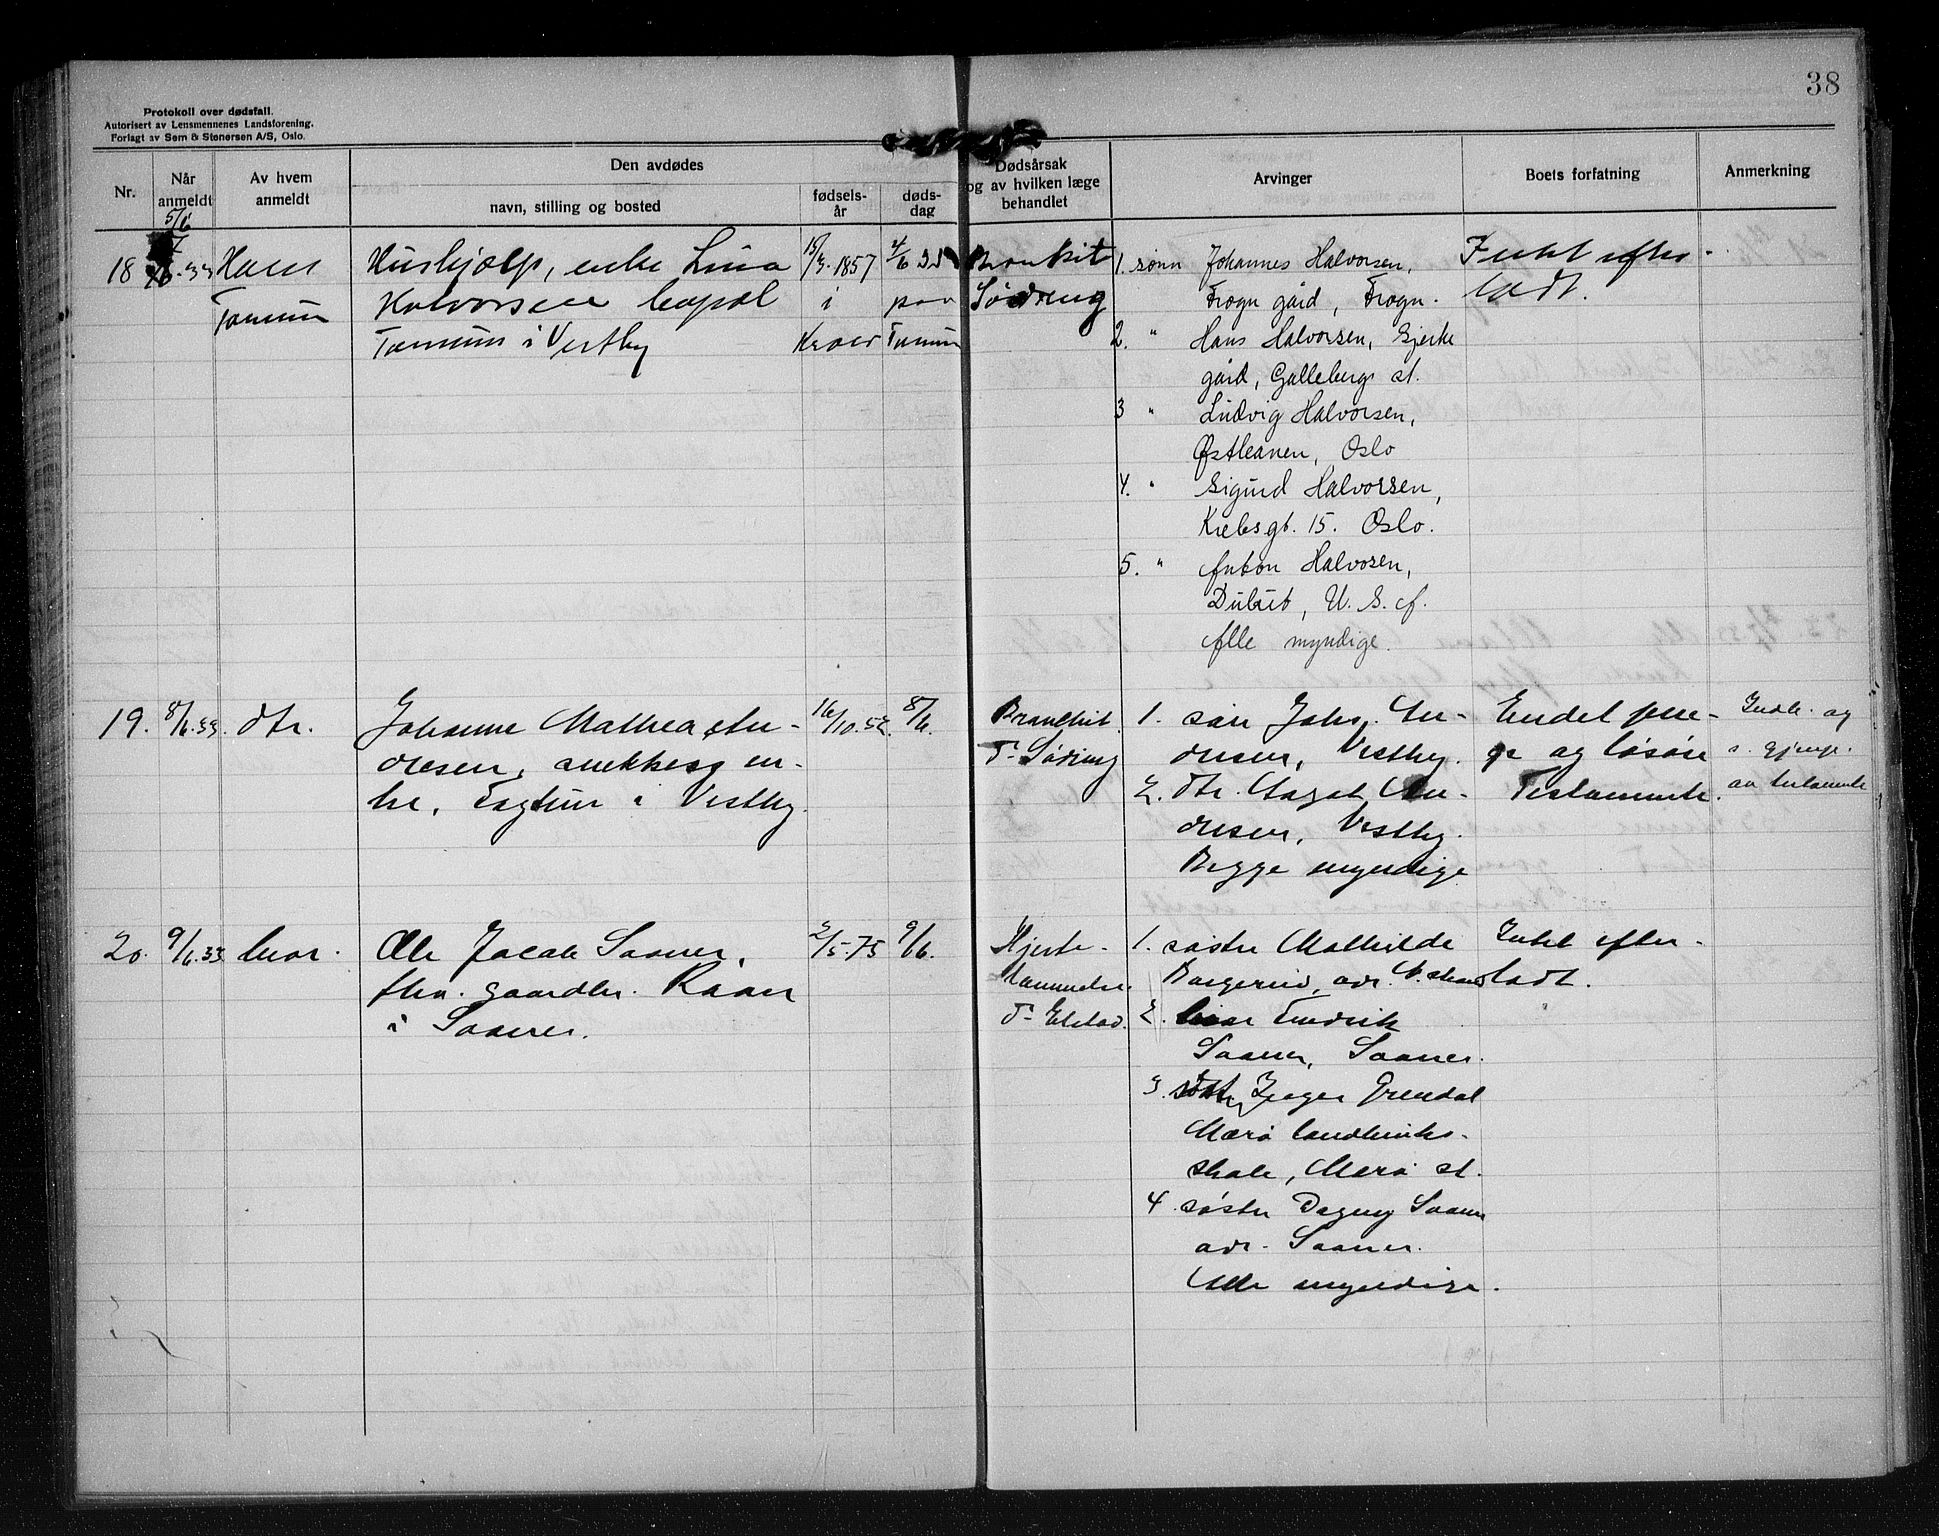 38
Protokoll over dødsfall.
Autorisert av Lensmennenes Landsforening.
Forlagt av Sem & Stenersen A/S, Oslo.
Nr.
Når anmeldt
Av hvem anmeldt
Den avdødes
navn, stilling og bosted
fødsels-år
døds-dag
Dødsårsak og av hvilken læge behandlet
Arvinger
Boets forfatning
Anmerkning
18
5/6
33
Hans
Tomum
Hushjælp, enke Lina
Halvorsen
i Vestby
15/3. 1857
i
Kroer
4/6 33
paa
Bronkit
Södring
1. sønn Johannes Halvorsen,
Frogn gård, Frogn.
2. " Hans Halvorsen, Gjerke
gård, Galleberg st.
3 " Ludvig Halvorsen,
Østheimen, Oslo
4. " Sigurd Halvorsen,
Krebsgt. 15. Oslo.
5. " Anton Halvosen,
U. S. A.
Alle myndige.
Intet efter-
ladt.
19. 8/6.33. dtr.
Johanne Mathea An-
dresen, snekkers en-
ke, i Vestby.
16/10.52. 8/6.
Bronchit.
Dr Södring
1. sön Johs. An-
dresen, Vestby.
2. dtr. Aagot An-
dresen, Vestby.
Begge myndige
Endel pen-
ge og lösöre
Testamente.
Indk. og
s. gjenp.
av testamente
20. 9/6.33 bror.
Ole Jacob Saaner,
fhv. gaardbr. Raaer
i Saaner.
2/5-75 9/6.
Hjerte-
lammelse.
Dr Elstad.
1. söster Mathilde
Borgerud, adr.
2. bror Fredrik
Saaner, Saaner.
3. söster Inger Grendal
Mærö landbruks-
skole, Merö st.
4. söster Dagny Saaner
adr. Saaner.
Alle myndige.
Intet efter-
ladt.